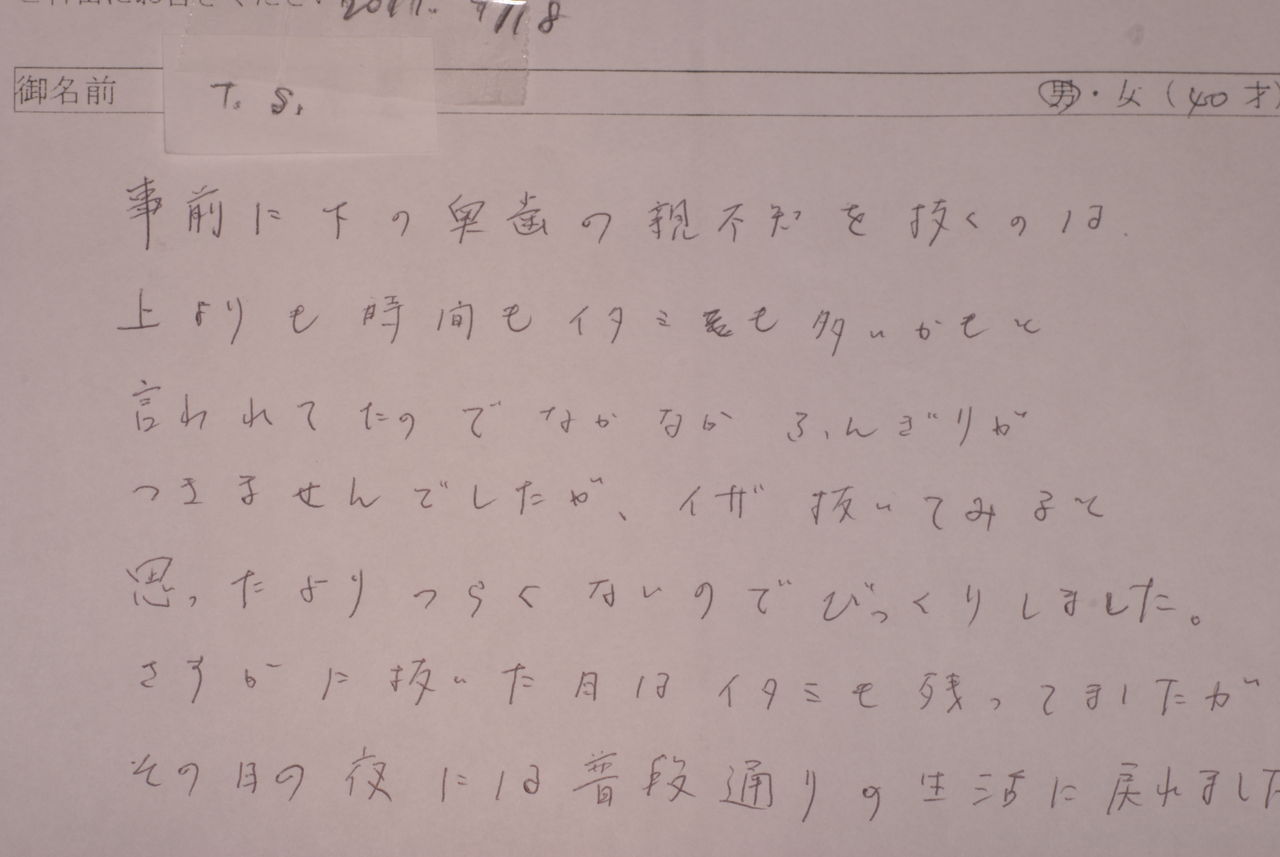 2017. 7/18
御名前 T. S. 男・女(40才
事前に下の奥歯の親不知を抜くのは
上よりも時間もイタミも多いかもと
言われてたのでなかなかふんぎりが
つきませんでしたが、イザ抜いてみると
思ったよりつらくないのでびっくりしました。
さすがに抜いた日はイタミも残ってましたが
その日の夜には普段通りの生活に戻れました